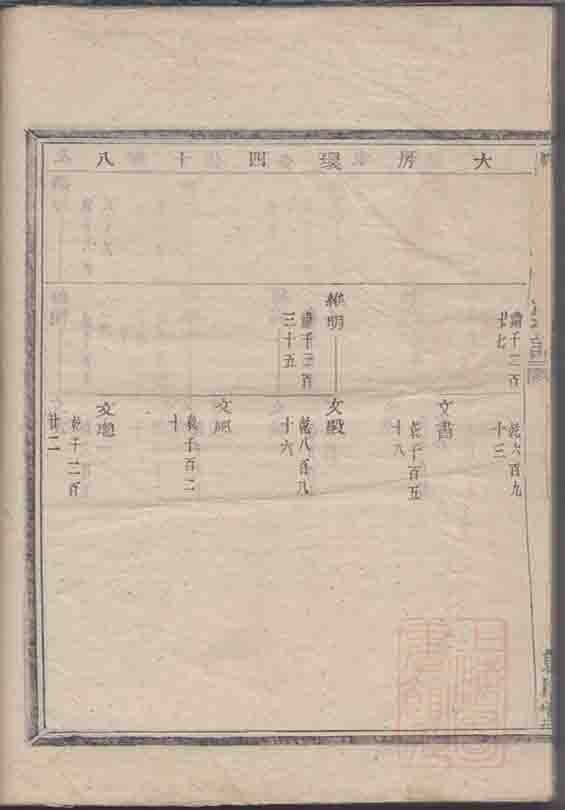 大房環四十八
肅千二百
七
乾六百九
十三
文書
乾千百五
十八
維明
肅千三百
三十五
文殿
乾八百八
十六
文
乾千百二
十
文
乾千二百
廿二